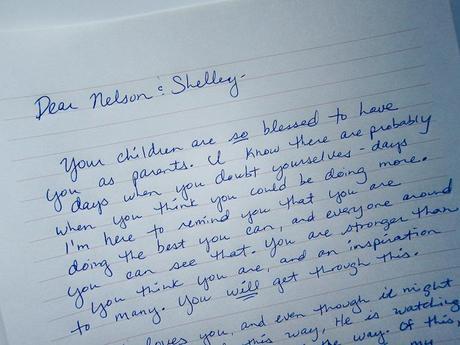 Dear Nelson & Shelley-
Your children are so blessed to have
you as parents. I know there are probably
days when you doubt yourselves - days
when you think you could be doing more.
I'm here to remind you that you are
doing the best you can, and everyone around
you can see that. You are stronger than
you think you are, and an inspiration
to many. You will get through this.
loves you, and even though it might
this way, He is watching
the way. Of this,
my